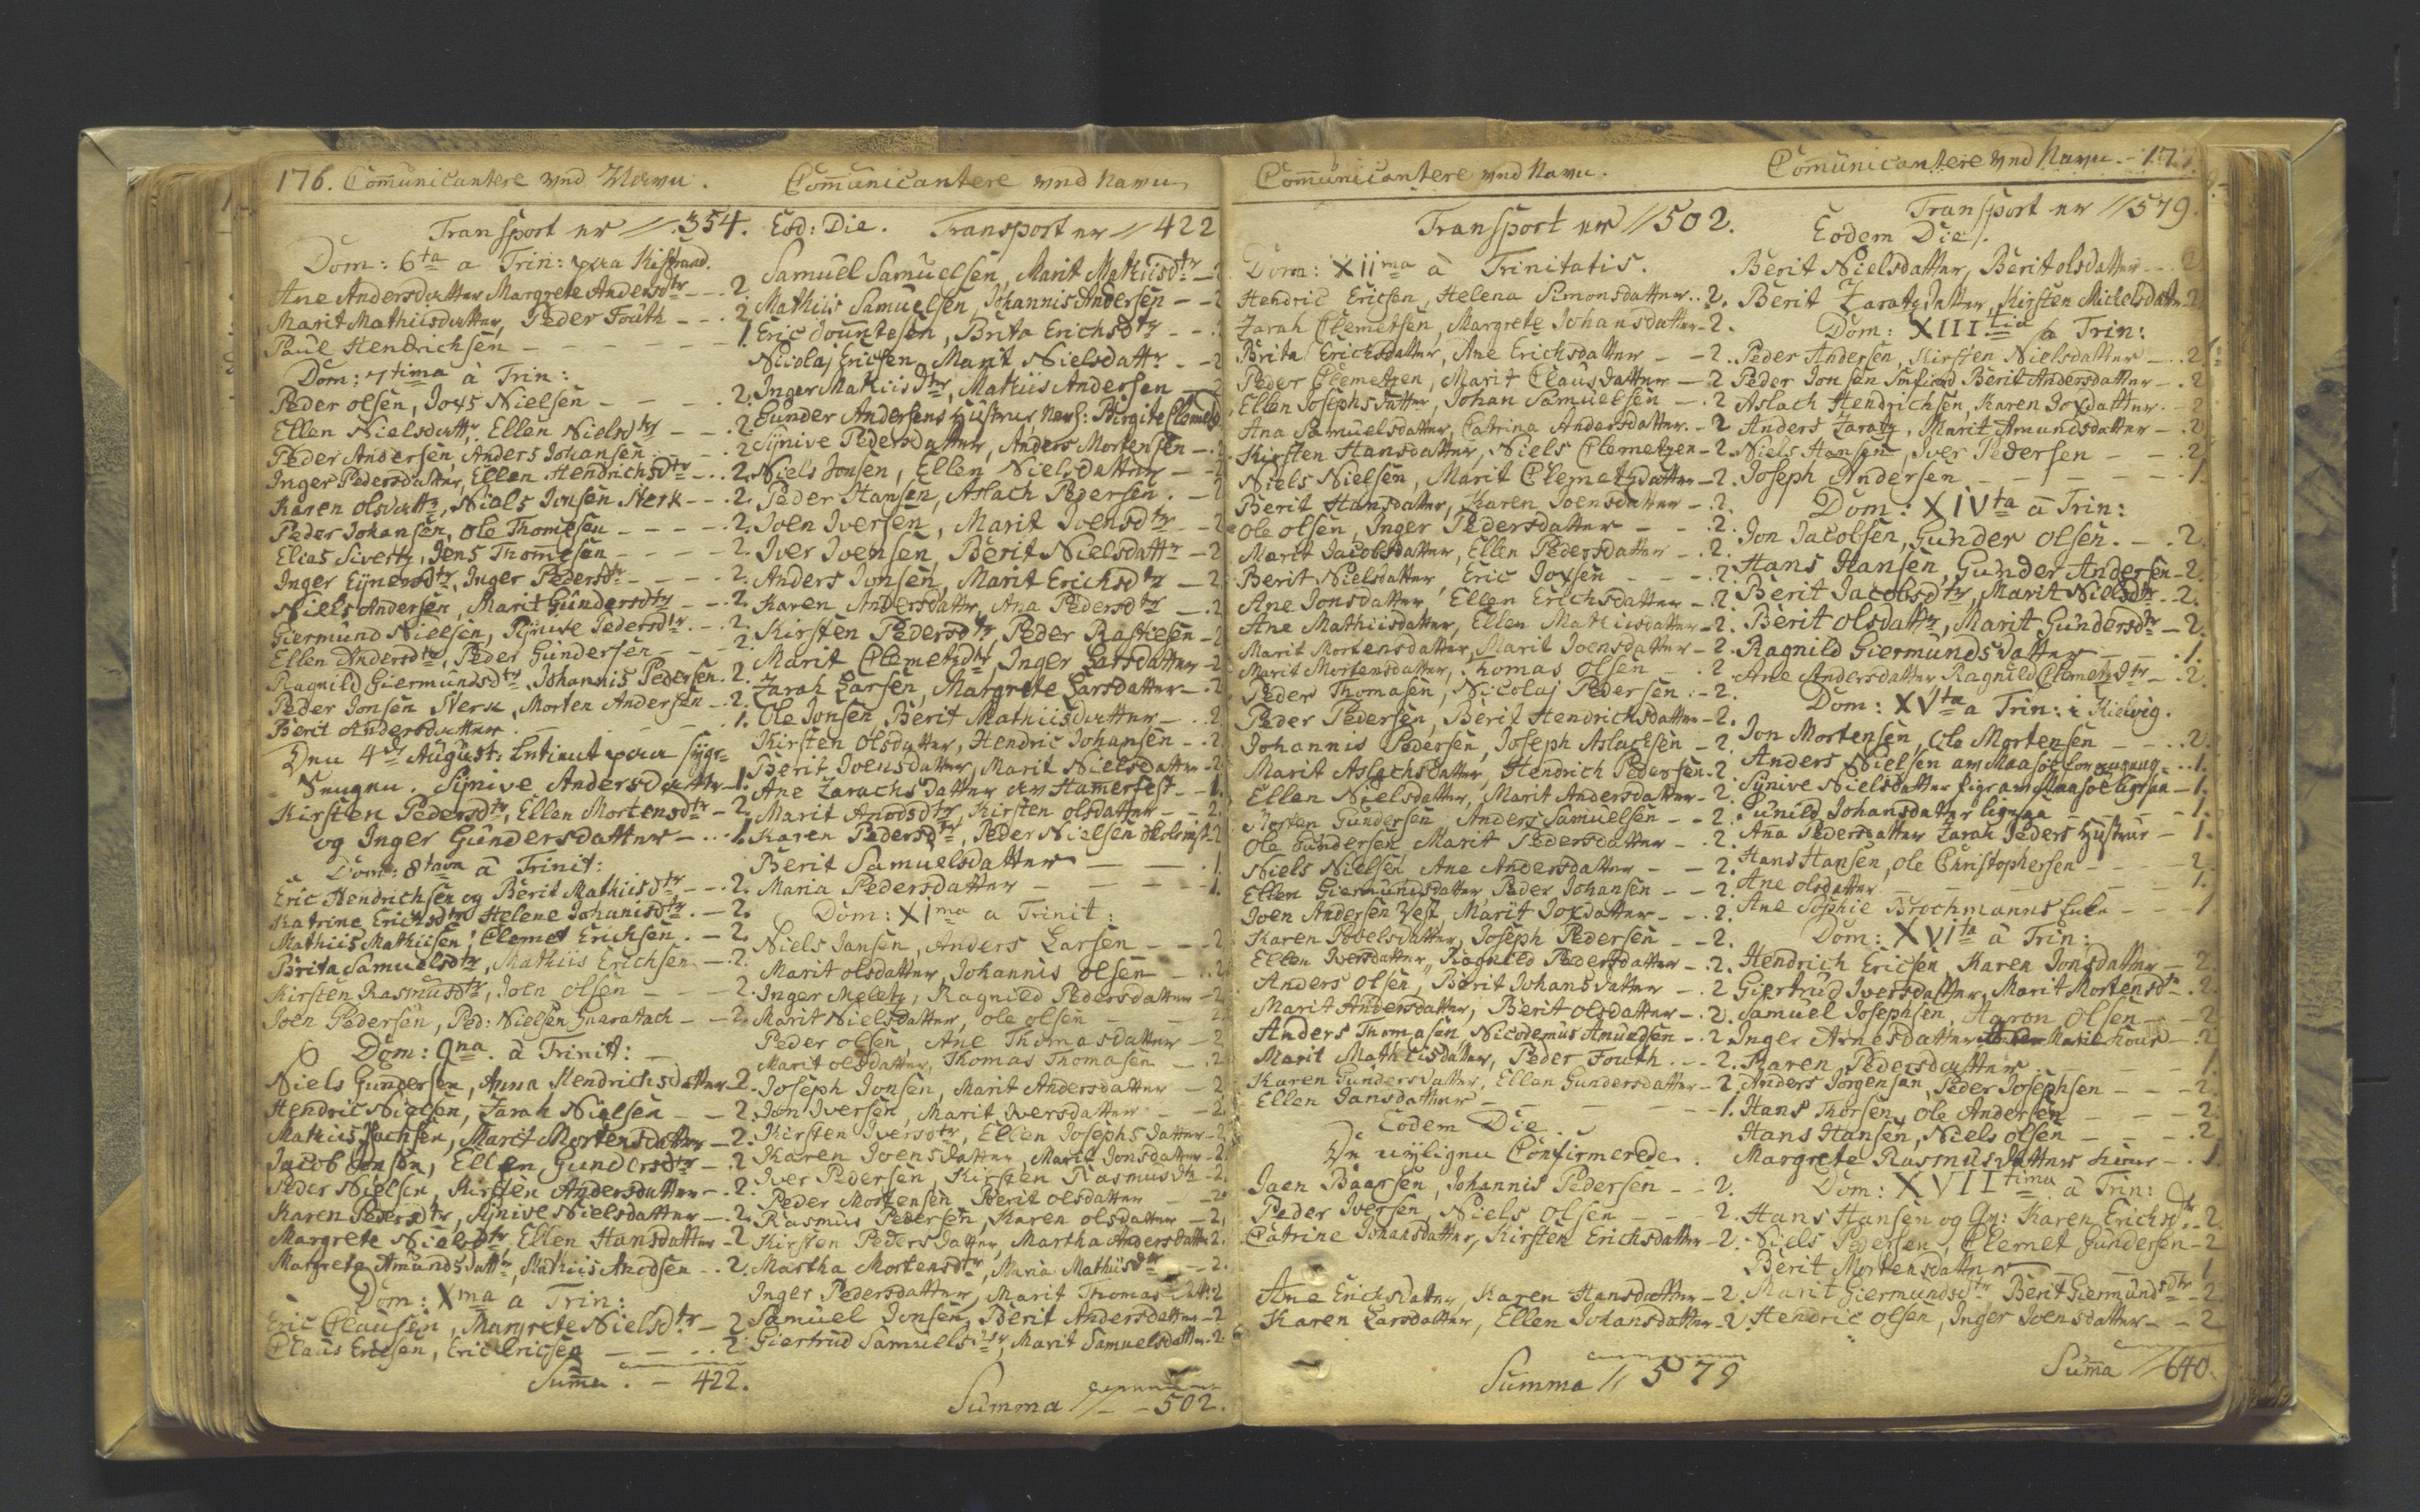 176. Com̄unicantere ved Navn.
Transport er // 354.
Dom: 6ta a Trin: paa Kistrand.
Ane Andersdatter Margrete Andersdtr - - 2
Marit Mathiisdatter, Peder Fouth - - 2
Paul Hendrichsen - - - 1.
Dom: 7tima à Trin:
Peder olsen, Nielsen - - 2.
Ellen Nielsdattr. Ellen Nielsdtr - - 2
Peder Andersen, Anders Johansen - - 2
Inger Pedersdatter, Ellen Hendrichsdtr - - 2.
Karen olsdattr, Niels Jonsen Sterk - - 2.
Peder Johansen, Ole Thomesen - - 2.
Elias Sivertz, Jens Thomesen - - 2.
Inger Eÿnersdtr, Inger Pedersdtr - - 2.
Niels Andersen, Marit Gundersdtr - - 2.
Giermund Nielsen, Sÿnive Pedersdtr. - 2.
Ellen Andersdtr, Peder Gundersen - - 2.
Ragnild Giermundsdtr, Johannis Pedersen. 2.
Peder Jonsen Sterk, Morten Andersen - 2.
Berit Andersdatter - - 1.
Den 4de August: paa Sÿge-
Sengen. Sÿnive Andersdatter - 1.
Kirsten Pedersdtr, Ellen Mortensdtr - 2.
og Inger Gundersdatter - - 1.
Dom: 8tava à Trinit:
Eric Hendrichsen og Berit Mathiisdtr - - 2.
Katrine Ericksdtr Helene Johanisdtr. - 2.
Mathiis Mathiisen, Clemet Erichsen. - 2.
Brita Samuelsdtr, Mathiis Erichsen - 2.
Kirsten Rasmusdtr, Joen olsen - - 2.
Joen Pedersen, Ped: Nielsen - - 2.
Dom: 9na. à Trinit:
Niels Gundersen, Anna Hendrichsdatter - 2.
Hendric Nielsen, Zarah Nielsen - - 2.
Mathiis Marit Mortensdatter - 2.
Jacob Jonsen, Ellen Gundersdtr - 2
Peder Nielsen, Kirsten Andersdatter - 2.
Karen Pedersdtr, Sÿnive Nielsdatter - 2.
Margrete Nielsdtr Ellen Hansdatter - 2
Margrete Amundsdattr, Mathiis Anodsen - 2.
Dom: Xma a Trin:
Eric Clausen, Margrete Nielsdtr - 2
Claus Ericsen, Eric Ericsen - - 2
Sum̄a. - 422.
Com̄unicantere ved Navn
Eod: Die. Transport er // 422
Samuel Samuelsen, Marit Mathiisdtr - 2
Mathiis Samuelsen, Johannis Andersen - - 2
Eric Brita Erichsdtr - - 2
Nicolaj Ericsen, Marit Nielsdattr. - 2
Inger Mathiisdtr, Mathiis Andersen - 2
Gunder Andersens Hustrue, Birgite
Sÿnive Pedersdatter, Anders Mortensen - 2
Niels Jonsen, Ellen Nielsdatter - 2
Peder Hansen, Aslach Pedersen. - 2
Joen Iversen, Marit Joensdtr - - 2
Iver Ivensen, Berit Nielsdattr - 2
Anders Jonsen, Marit Erichsdtr - 2
Karen Andersdattr, Ana Pedersdtr - 2
Kirsten Pedersdtr, Peder - 2
Marit Clemetzdtr, Inger Larsdatter - 2
Zarah Larsen, Margrete Larsdatter - 2
Ole Jonsen, Berit Mathiisdatter - 2
Kirsten Olsdatter, Hendric Johansen - 2
Berit Joensdatter, Marit Nielsdatter - 2
Ane Zarachsdatter av Hamerfest - - 1.
Marit Anodsdtr, Kirsten olsdatter - - 2.
Karen Pedersdtr, Peder Nielsen - 2
Berit Samuelsdatter - - 1
Maria Pedersdatter - - 1.
Dom: XIma a Trinit:
Niels Jansen, Anders Larsen - - 2
Marit olsdatter, Johannis olsen - 2
Inger Meletz, Ragnild Pedersdatter - 2
Marit Nielsdatter, ole olsen - - 2
Peder olsen, Ane Thomasdatter - 2
Marit olsdatter, Thomas Thomasen - 2
Joseph Jonsen, Marit Andersdatter - 2
Jon Iversen, Marit Iversdatter - - 2.
Kirsten Iversdtr, Ellen Josephsdatter - 2
Karen Joensdatter, Marit Jonsdatter - 2
Iver Pedersen, Kirsten Rasmusdtr - 2.
Peder Mortensen Berit olsdatter - 2.
Rasmus Pedersen, Karen olsdatter - 2.
Kirsten Pedersdatter, Martha Andersdatter 2.
Martha Mortensdtr, Maria Mathiisdtr - 2.
Inger Pedersdatter, Marit Thomasdatt: 2
Samuel Jonsen, Berit Andersdatter - 2
Giertrud Samuelsdtr, Marit Samuelsdatter - 2
Summa // - 502.
Com̄unicantere ved Navn.
Transport er // 502.
Dom: XIIma à Trinitatis.
Hendric Ericsen, Helena Simonsdatter .. 2.
Zarah Clemetsen, Margrete Johansdatter - 2.
Brita Erichsdatter, Ane Erichsdatter - - 2.
Peder Clemetzen, Marit Clausdatter - 2
Ellen Josephsdatter, Johan Samuelsen - 2
Ana Samuelsdatter, Catrina Andersdatter. - 2
Kirsten Hansdatter, Niels Clemetzen - 2.
Niels Nielsen, Marit Clemetzdatter - 2.
Berit Hansdatter, Karen Joensdatter - 2.
Ole olsen, Inger Pedersdatter - - 2.
Marit Jacobsdatter, Ellen Pedersdatter - 2.
Berit Nielsdatter, Eric Joxsen - - 2.
Ane Jonsdatter, Ellen Erichsdatter - 2.
Ane Mathiisdatter, Ellen Mathiisdatter - 2.
Marit Mortensdatter, Marit Joensdatter - 2.
Marit Mortensdatter, Thomas olsen - 2
Peder Thomasen, Nicolaj Pedersen - 2.
Peder Pedersen, Berit Hendrichsdatter - 2.
Johannis Pedersen, Joseph Aslachsen - 2.
Marit Aslachsdatter, Hendrich Pedersen - 2
Ellen Nielsdatter, Marit Andersdatter - 2.
Morten Gundersen Anders Samuelsen - - 2.
Ole Gundersen Marit Pedersdatter - 2.
Niels Nielsen Ane Andersdatter - - 2.
Ellen Giermundsdatter Peder Johansen - - 2.
Joen Andersen Marit Joxdatter - - 2.
Karen Povelsdatter, Joseph Pedersen - - 2.
Ellen Iversdatter, Ragnild Pedersdatter - 2.
Anders olsen, Berit Johansdatter - 2
Marit Andersdatter, Berit olsdatter - 2.
Anders Thomasen, Nicodemus Amundsen - 2
Marit Mathiisdatter, Peder Fouth. - 2.
Karen Gundersdatter, Ellen Gundersdatter - 2
Ellen Jansdatter - - 1.
Eodem Die.
De nÿligen Confirmerede.
Jaen Baarsen, Johannis Pedersen - - 2.
Peder Iversen, Niels olsen - - 2.
Catrine Johansdatter, Kirsten Erichsdatter - 2.
Ane Erichsdatter, Karen Hansdatter - 2.
Karen Larsdatter, Ellen Johansdatter - 2.
Summa // 579
Com̄unicantere ved Navn. - 177.
Transport er // 579.
Eodem Die.
Berit Nielsdatter, Berit olsdatter - - 2
Berit Zaratzdatter, Kirsten Michelsdatter 2
Dom: XIIItia à Trin:
Peder Andersen, Kirsten Nielsdatter - 2
Peder Jonsen Berit Andersdatter - 2
Aslach Hendrichsen, Karen Joxdatter. - 2
Anders Zaratz, Marit Amundsdatter - 2
Niels Hansen, Iver Pedersen - - 2
Joseph Andersen - - 1.
Dom: XIVta à Trin:
Jon Jacobsen, Gunder olsen. - 2.
Hans Hansen, Gunder Andersen - 2.
Berit Jacobsdtr, Marit Nielsdtr - 2.
Berit olsdattr, Marit Gundersdtr - 2.
Ragnild Giermundsdatter - - 1.
Ane Andersdatter Ragnild Clemetzdtr - 2.
Dom: XVta a Trin: i Kielvig.
Jon Mortensen, Ole Mortensen - - 2.
Anders Nielsen av Maasøe - - 1.
Sÿnive Nielsdatter av Maasøe ligesaa - 1.
Gunild Johansdatter ligesaa - - 1.
Ana Pedersdatter Zarah Peders Hustrue - 1.
Hans Hansen, ole Christophersen - - 2
Ane olsdatter - - 1.
Ane Sophie Brochmanns Enke - - 1
Dom: XVIta à Trin:
Hendrich Ericsen, Karen Jonsdatter - 2.
Giertrud Iversdatter, Marit Mortensdtr - 2.
Samuel Josephsen, Aaron Olsen - - 2
Inger Arnesdatter Marit - 2
Karen Pedersdatter - - 1.
Anders Jörgensen, Peder Josephsen - - 2.
Hans Thorsen, Ole Andersen - - 2.
Hans Hansen, Niels olsen - - 2
Margrete Rasmusdatter - 1.
Dom: XVIItima à Trin:
Hans Hansen og Qv: Karen Ericksdtr - 2.
Niels Pedersen, Clemet Gundersen - 2
Berit Mortensdatter - 1
Marit Giermundsdtr, Berit Giermundsdtr - 2
Hendric olsen, Inger Joensdatter - - 2
Sum̄a // 640.